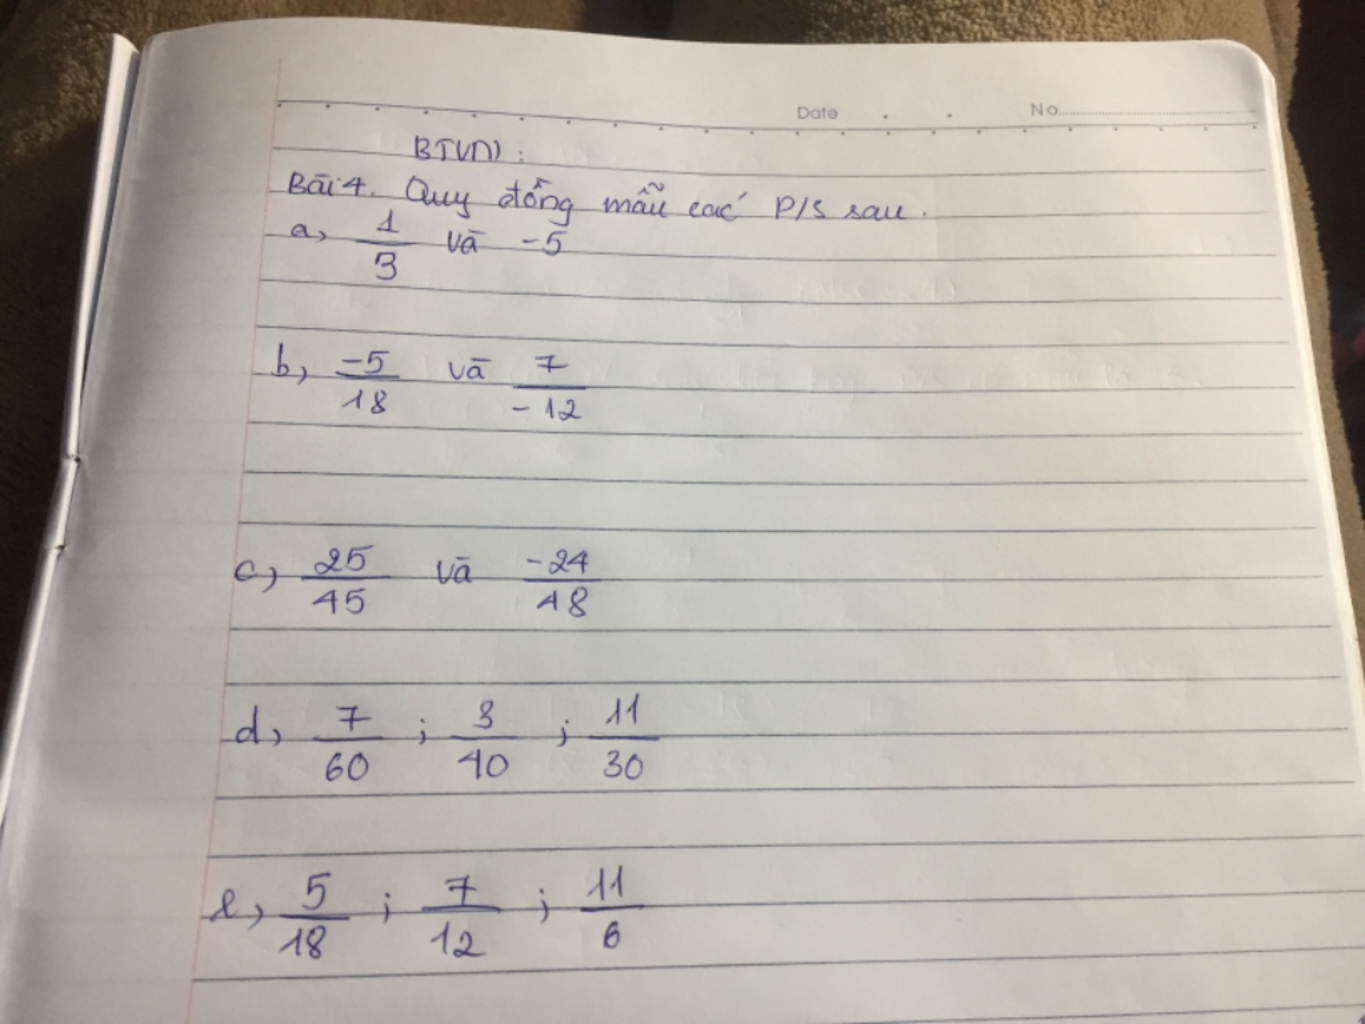 Date No
BTVN :
Bài 4. Quy đồng mẫu các P/S sau.
a, 1/3 và -5
b, -5/18 và 7/-12
c, 25/45 và -24/48
d, 7/60 ; 3/40 ; 11/30
e, 5/18 ; 7/12 ; 11/6